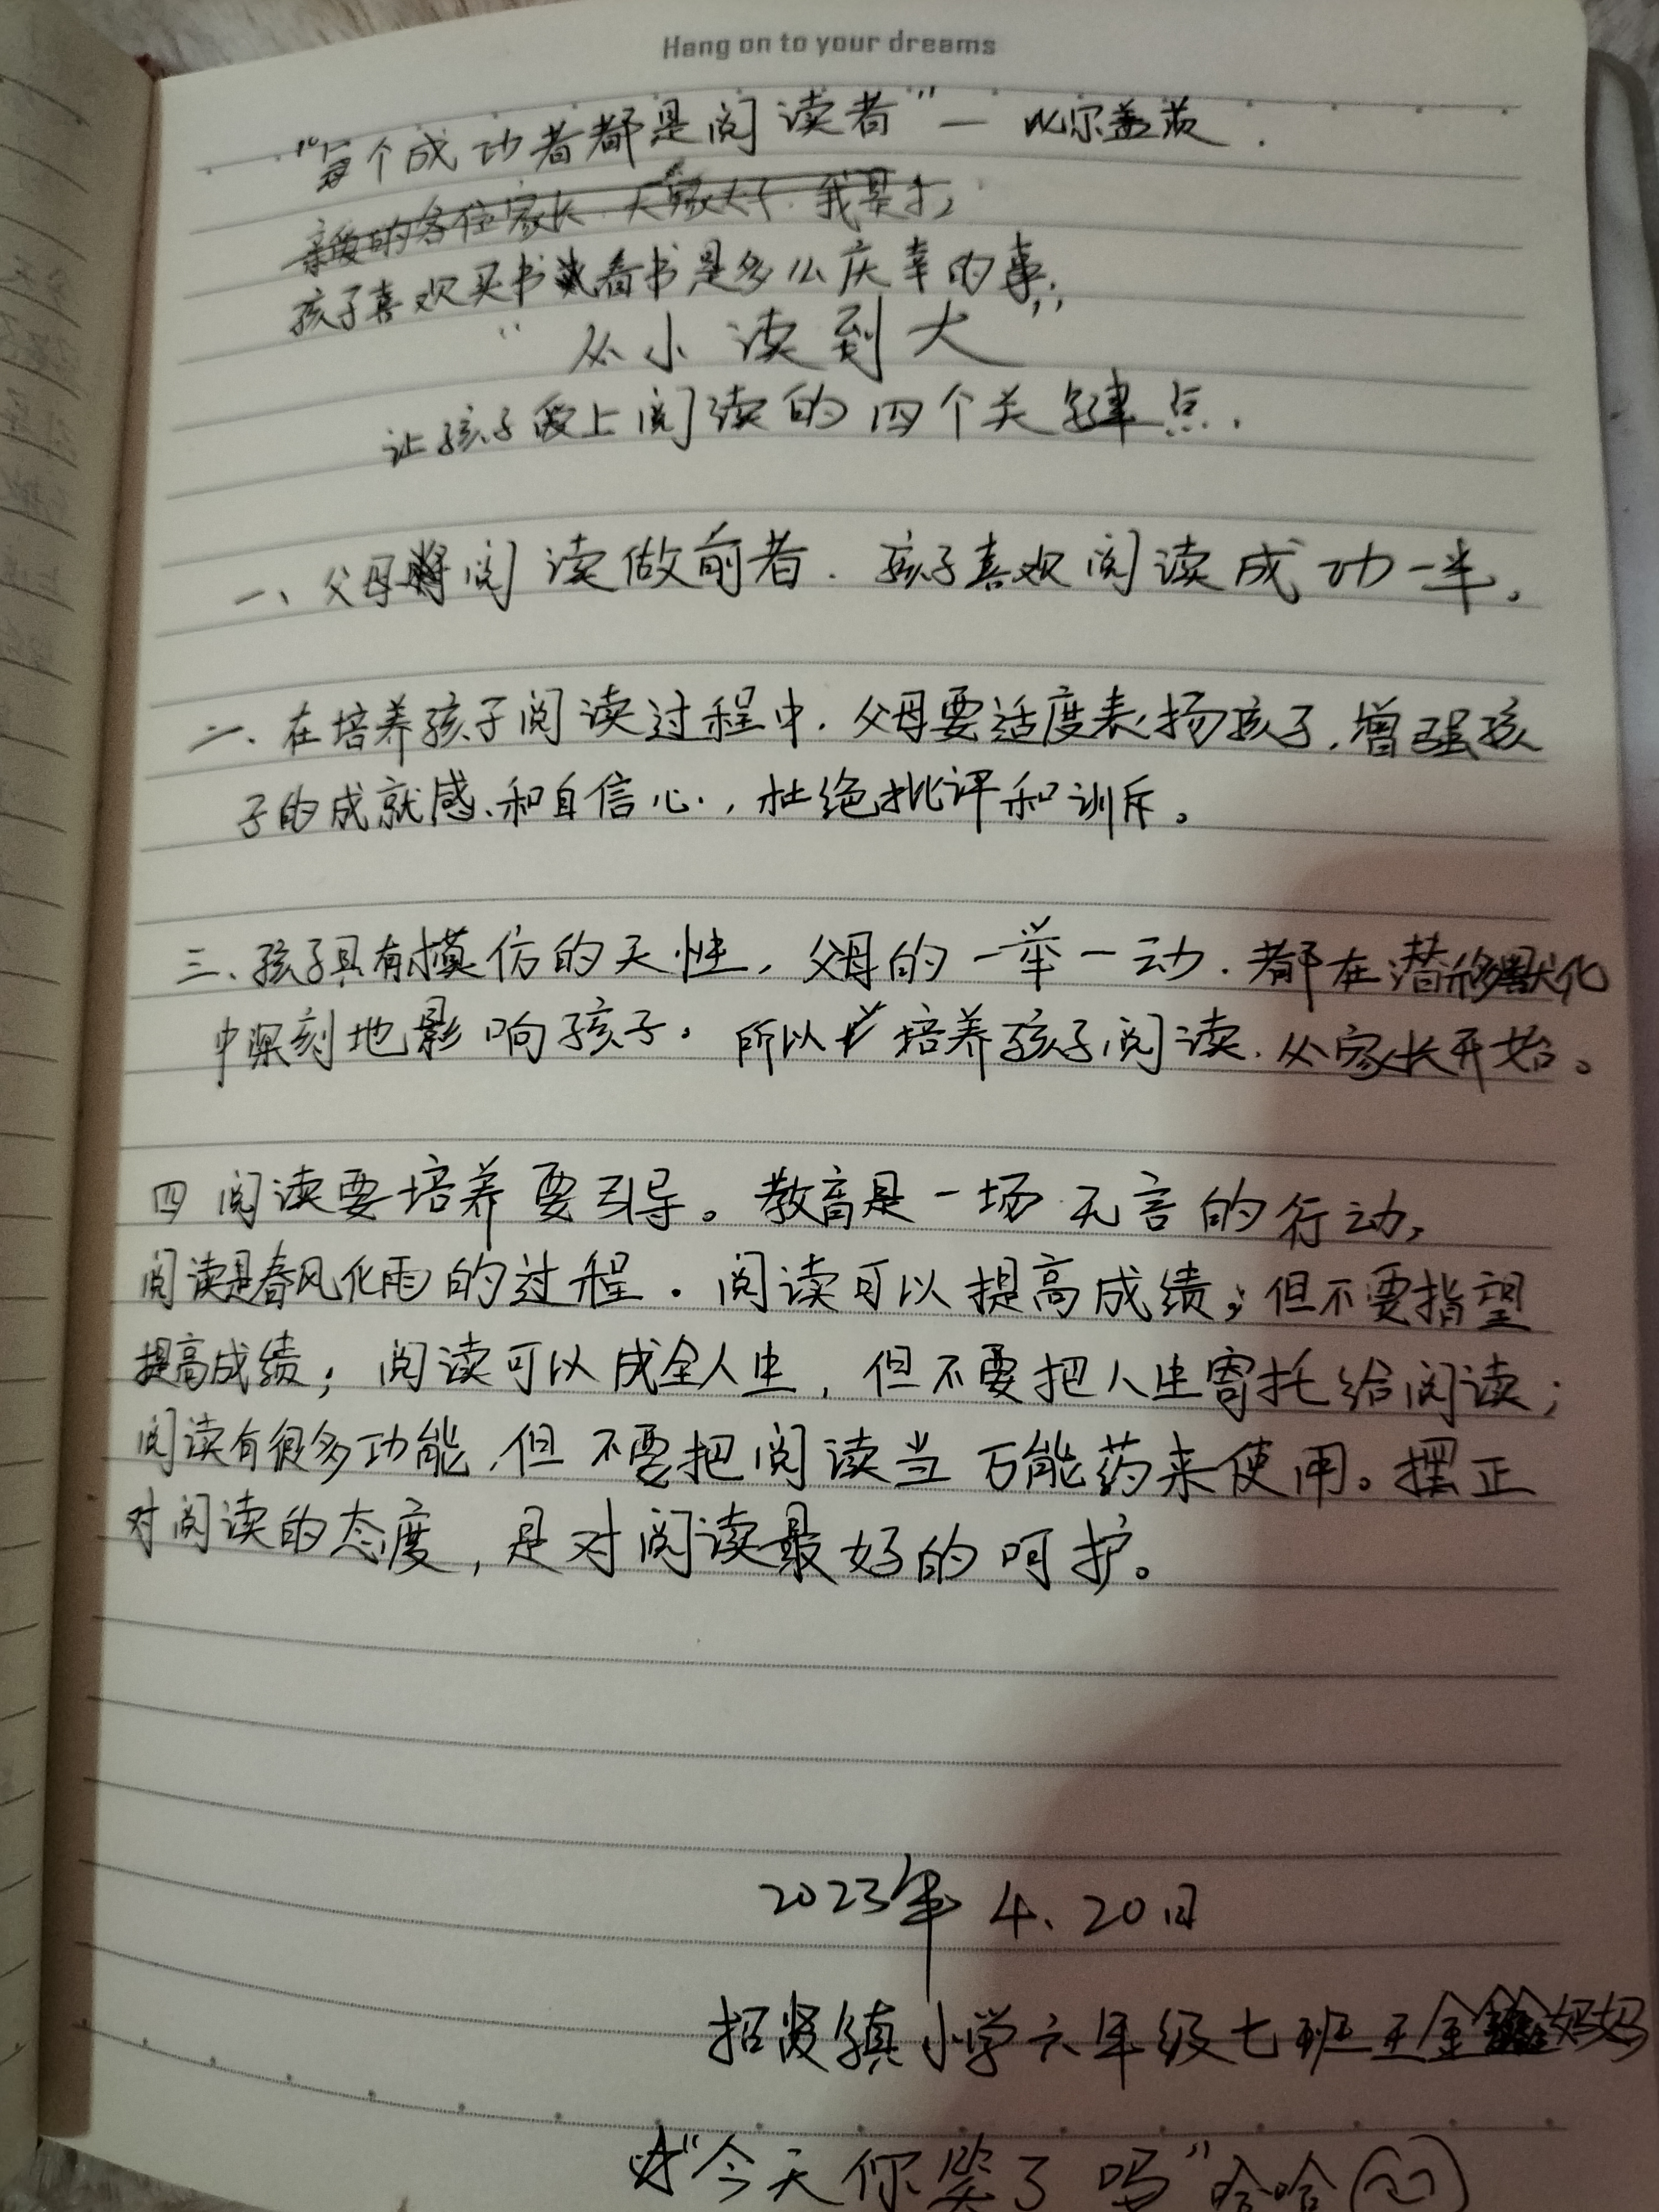 Hang on to your dreams
"每个成功者都是阅读者"— 比尔盖茨.
亲爱的各位家长.大家好.我是
孩子喜欢买书看书是多么庆幸的事;
"从小读到大"
让孩子爱上阅读的四个关键点.
一、父母将阅读做前者.孩子喜欢阅读成功一半。
二、在培养孩子阅读过程中.父母要适度表扬孩子.增强孩
子的成就感、和自信心.,杜绝批评和训斥。
三、孩子具有模仿的天性,父母的一举一动.都在潜移默化
中深刻地影响孩子.所以培养孩子阅读.从家长开始。
四 阅读要培养要引导。教育是一场无言的行动,
阅读是春风化雨的过程.阅读可以提高成绩;但不要指望
提高成绩;阅读可以成全人生,但不要把人生寄托给阅读;
阅读有很多功能.但不要把阅读当万能药来使用。摆正
对阅读的态度,是对阅读最好的呵护。
2023年4.20日
招贤镇小学六年级七班王金鑫妈妈
"今天你笑了吗"哈哈